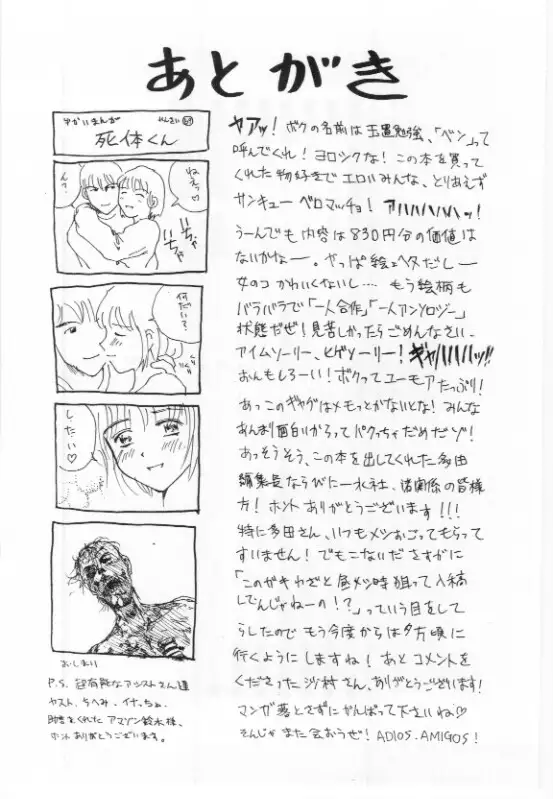 あとがき
ヤアッ! ボクの名前は玉置勉強、「ベン」って
呼んでくれ! ヨロシクな! この本を買って
くれた物好きでエロいみんな、とりあえず
サンキューベロマッチョ! アハハハハハッ!
うーんでも内容は830円分の価値は
ないかなー。やっぱ絵ヘタだしー
女のコかわいくないし…… もう絵柄も
バラバラで「一人合作」「一人アンソロジー」
状態だぜ! 見苦しかったらごめんなさい、
アイムソーリー、ヒゲソーリー! ギャハハハハッ!!
おんもしろーい! ボクってユーモアたっぷり!
あっこのギャグはメモっとかないとな! みんな
あんまり面白いからってパクっちゃだめだゾ!
あっそうそう、この本を出してくれた多田
編集長ならびに一水社、諸関係の皆様
方! ホントありがとうございます!!!
特に多田さん、いつもメシおごってもらって
すいません! でもこないださすがに
「このガキわざと昼メシ時狙って入稿
してんじゃねーの!?」っていう目をして
らしたので もう今度からは夕方頃に
行くようにしますね! あとコメントを
くださった沙村さん、ありがとうございます!
マンガ落とさずにがんばって下さいね♡
そんじゃまた会おうぜ! ADIOS. AMIGOS!
ゆかいまんが
れんさい
死体くん
ねぇ♡
ん?
いちゃ
いちゃ
何だい?
したい♡
おしまい
P.S. 超有能なアシストさん達
ヤスト、ちへみ、イナっちゃ、
助言をくれたアマゾン鈴木様、
ホントありがとうございます。